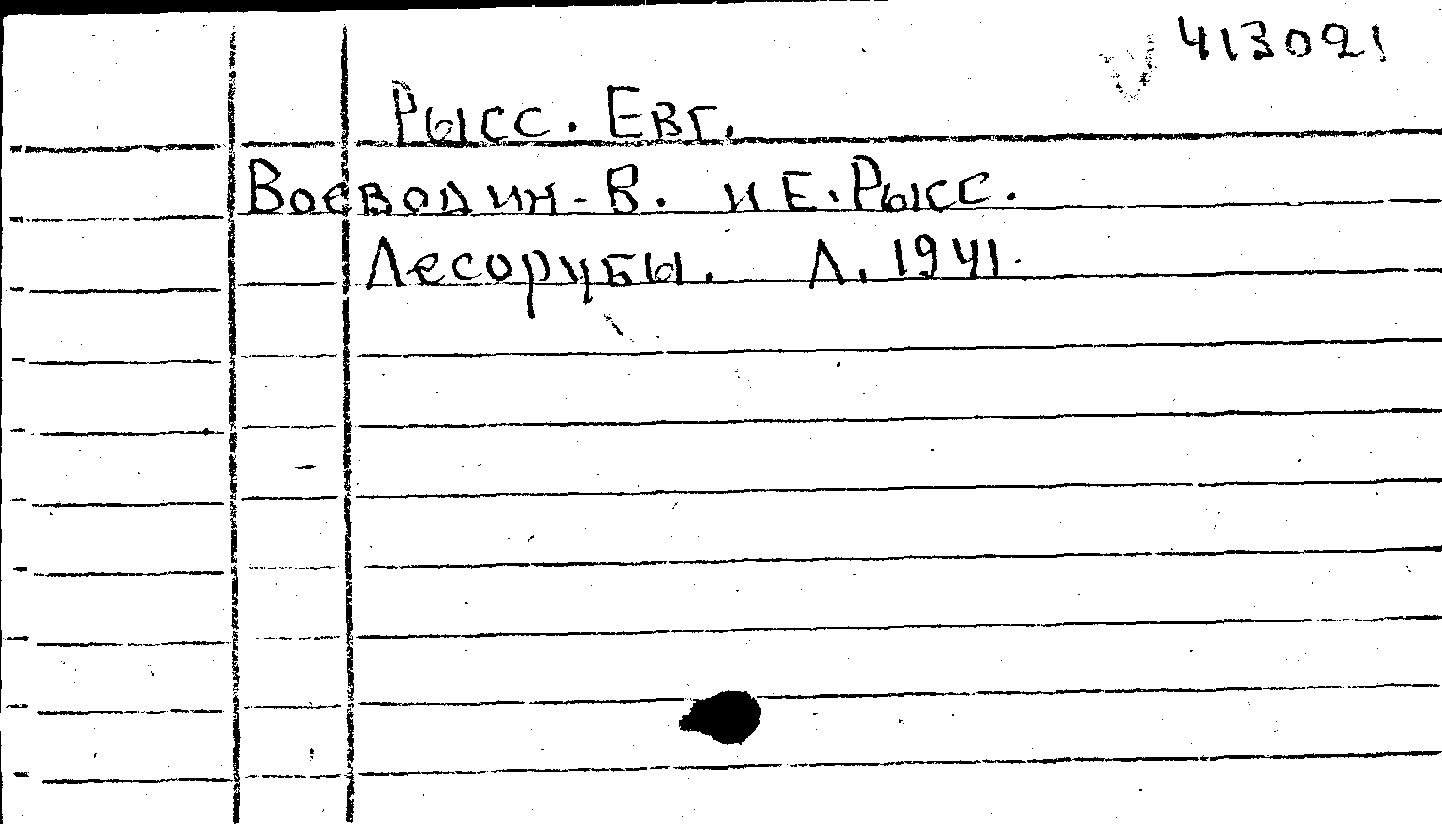 V 413021
Рысс. Евг.
Воеводин-В. и Е. Рысс.
Лесорубы. Л. 1941.